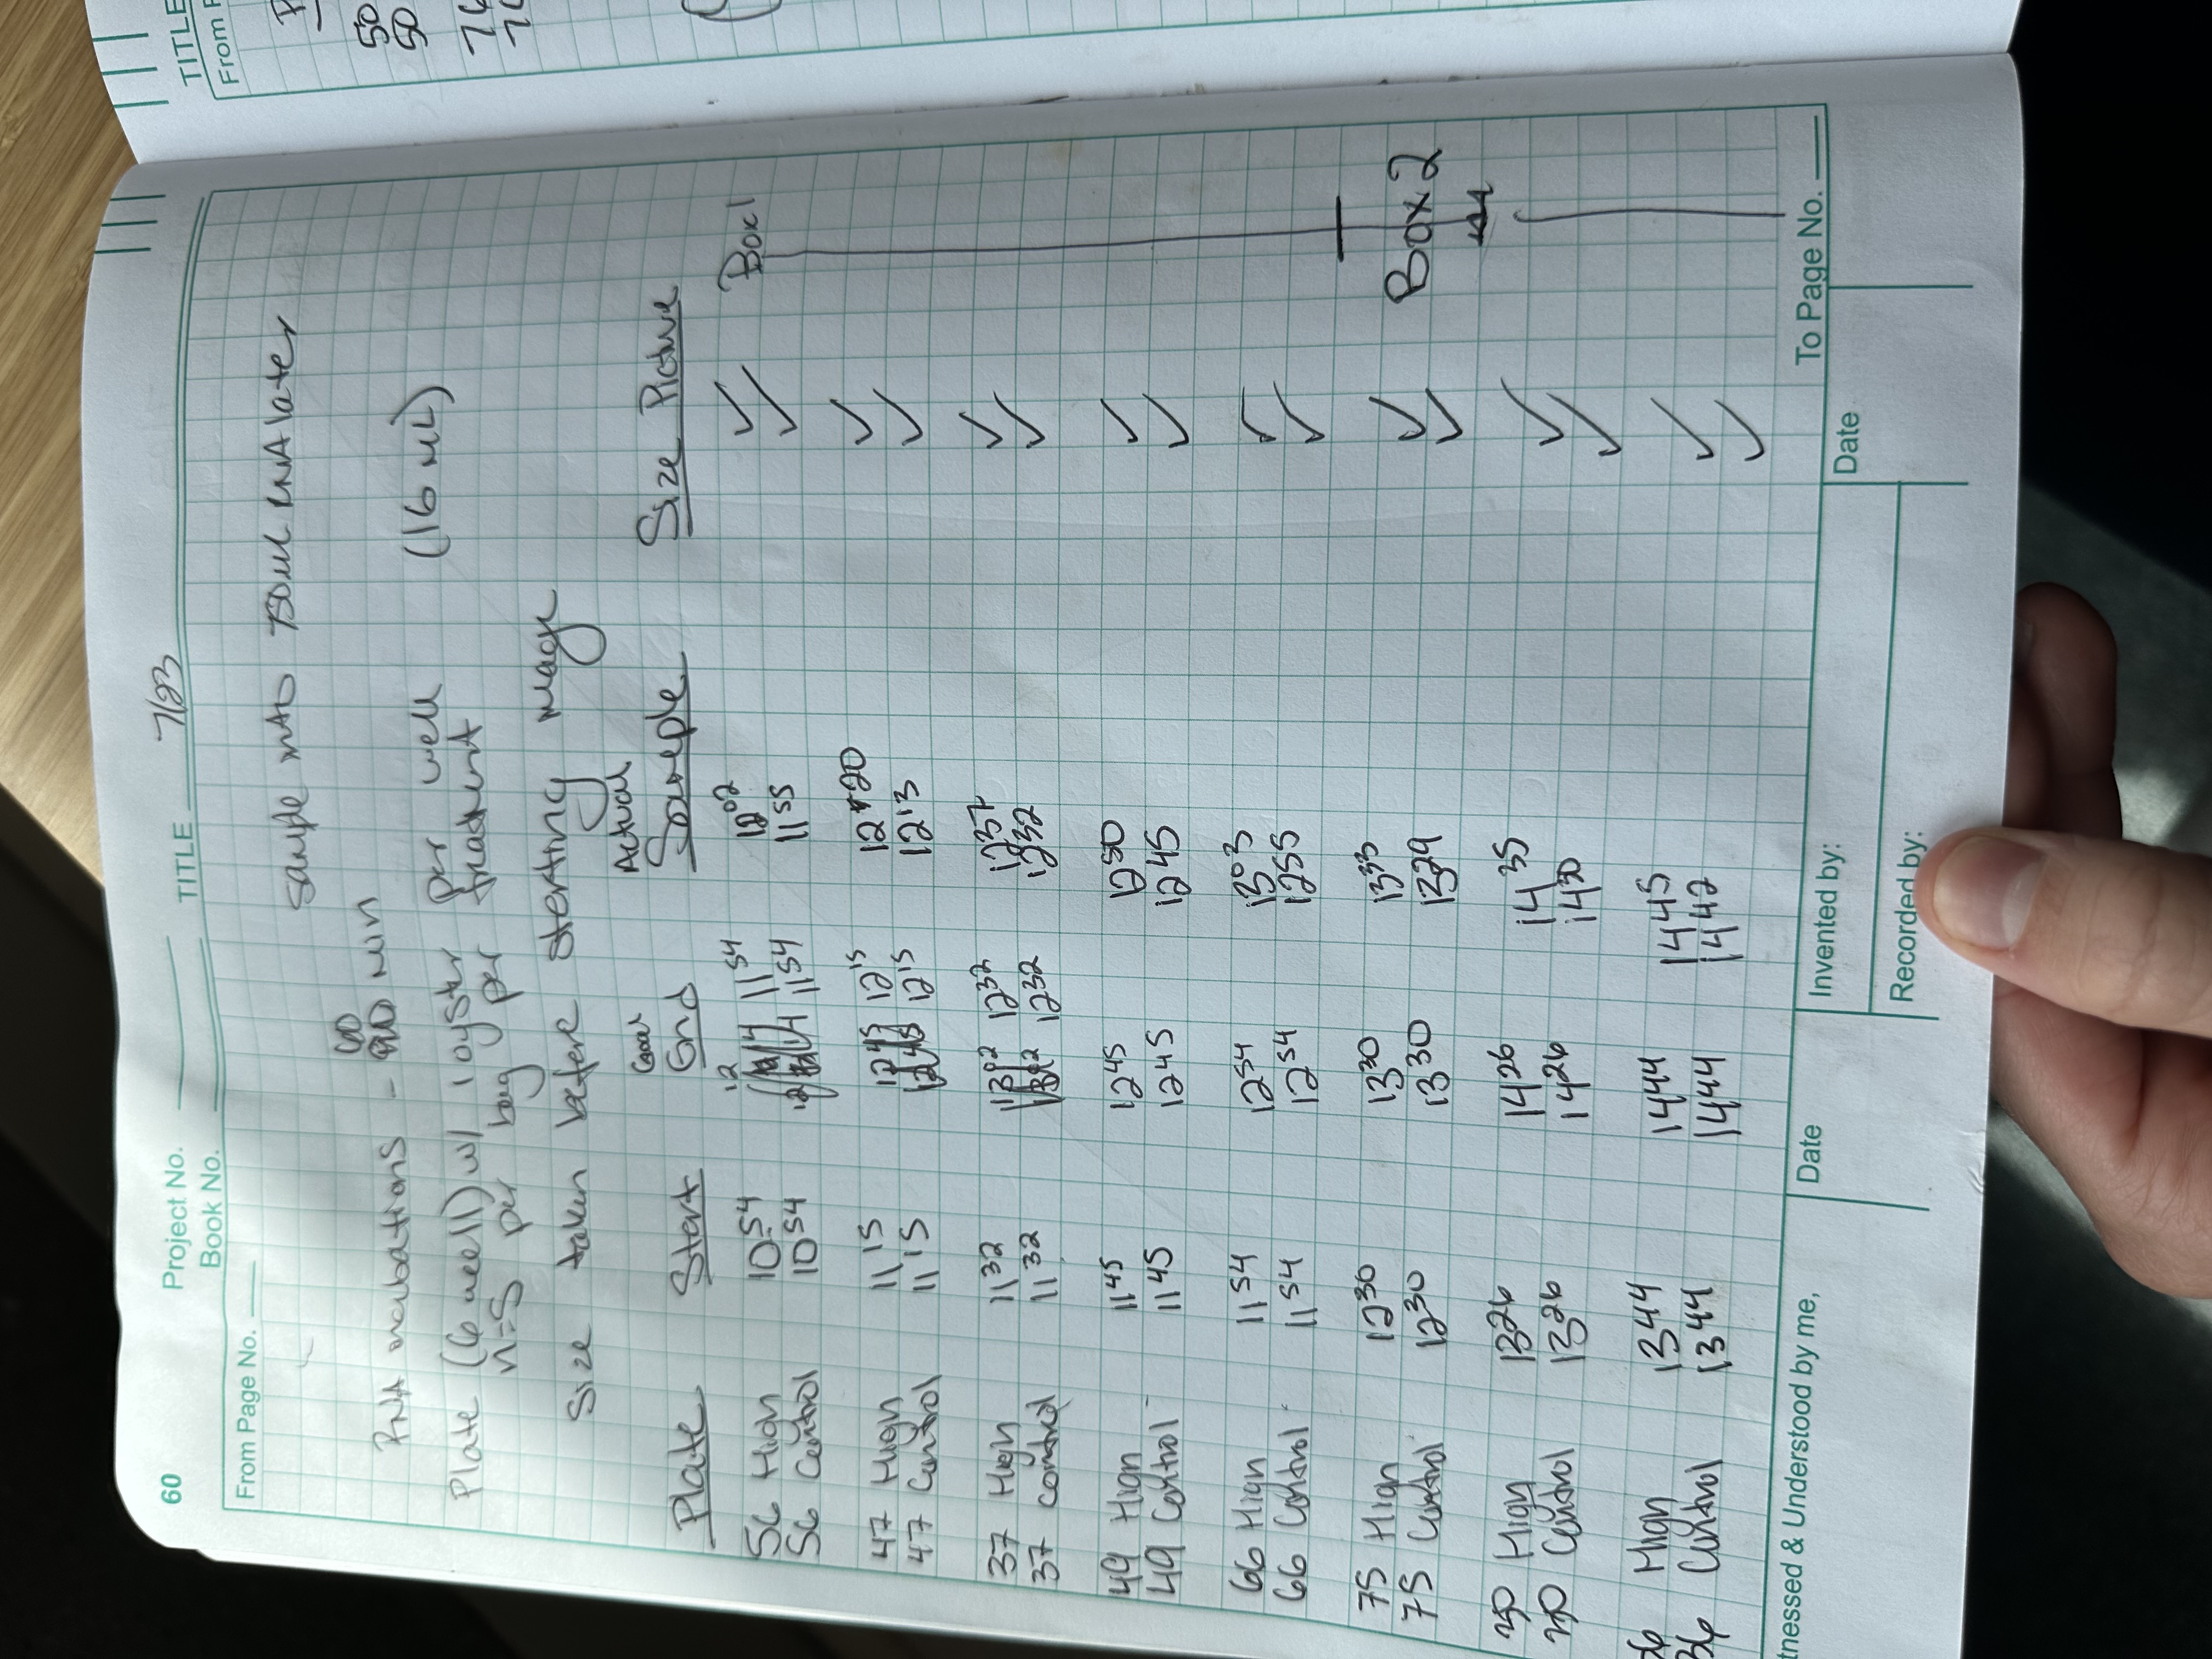 60 Project No. TITLE 7/23
Book No.
From Page No.
Sample into 750 uL RNAlater
60
RNA incubations - min
Plate (6 well) w/ 1 oyster per well (16 mL)
n=5 per bag per treatment
Size taken before starting image
Goal Actual
Plate Start End Sample Size Picture
56 High 10 54 11 54 12 02 ✓ Box 1
56 Control 10 54 11 54 11 55 ✓
47 High 11 15 12 45 12 15 12 20 ✓
47 Control 11 15 12 45 12 15 12 13 ✓
37 High 11 32 13 02 12 32 12 37 ✓
37 Control 11 32 13 02 12 32 12 32 ✓
49 High 11 45 12 45 12 50 ✓
49 Control 11 45 12 45 12 45 ✓
66 High 11 54 12 54 13 03 ✓
66 Control 11 54 12 54 12 55 ✓
75 High 12 30 13 30 13 33 ✓
75 Control 12 30 13 30 13 29 ✓ Box 2
30 High 13 26 14 26 14 35 ✓
30 Control 13 26 14 26 14 30 ✓
36 High 13 44 14 44 14 45 ✓
36 Control 13 44 14 44 14 42 ✓
tnessed & Understood by me, Date Invented by: Date To Page No.
Recorded by:
TITLE
From P
50
50
76